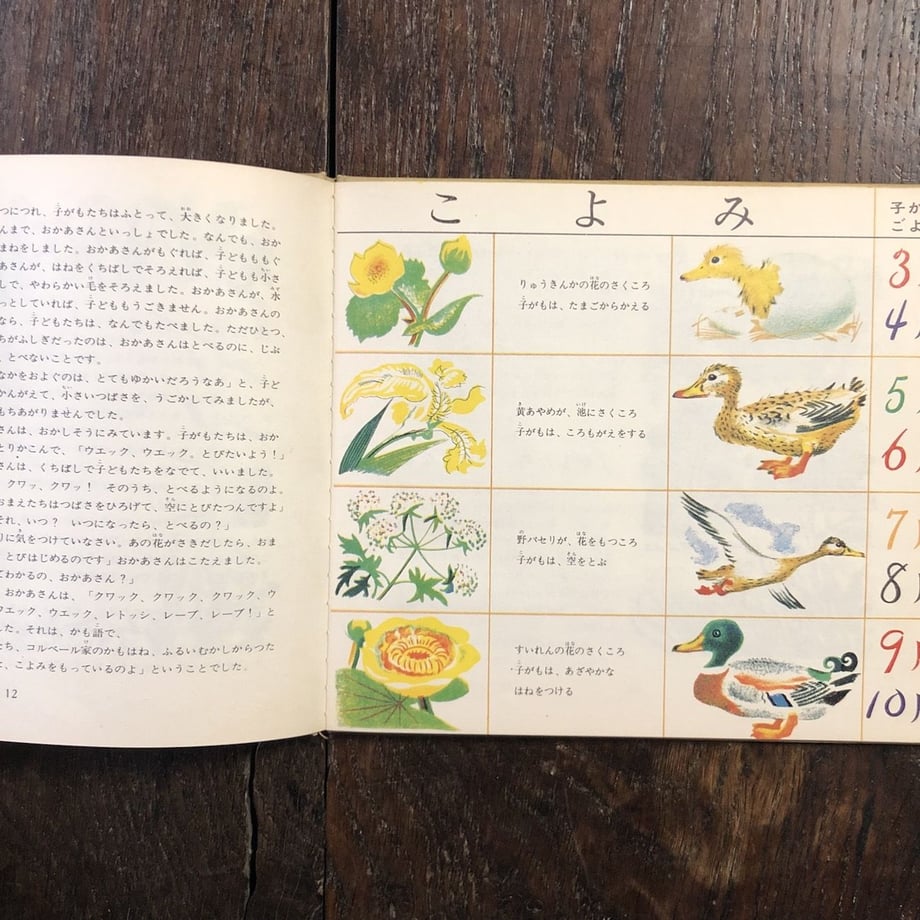 つにつれ、子がもたちはふとって、大きくなりました。
んまで、おかあさんといっしょでした。なんでも、おか
まねをしました。おかあさんがもぐれば、子どもももぐ
あさんが、はねをくちばしでそろえれば、子どもも小さ
しで、やわらかい毛をそろえました。おかあさんが、水
っとしていれば、子どももうごきません。おかあさんの
なら、子どもたちは、なんでもたべました。ただひとつ、
ちがふしぎだったのは、おかあさんはとべるのに、じぶ
、とべないことです。
なかをおよぐのは、とてもゆかいだろうなあ」と、子ど
かんがえて、小さいつばさを、うごかしてみましたが、
もちあがりませんでした。
さんは、おかしそうにみています。子がもたちは、おか
とりかこんで、「ウエック、ウエック。とびたいよう！」
さんは、くちばしで子どもたちをなでて、いいました。
クワッ、クワッ！ そのうち、とべるようになるのよ。
おまえたちはつばさをひろげて、空にとびたつんですよ」
それ、いつ？ いつになったら、とべるの？」
りに気をつけていなさい。あの花がさきだしたら、おま
とびはじめるのです」おかあさんはこたえました。
てわかるの、おかあさん？」
おかあさんは、「クワック、クワック、クワック、ウ
ウエック、ウエック、レトッシ、レーブ、レーブ！」と
した。それは、かも語で、
たち、コルベール家のかもはね、ふるいむかしからつた
、こよみをもっているのよ」ということでした。
12
こよみ
子が
ごよ
りゅうきんかの花のさくころ
子がもは、たまごからかえる
3
4
黄あやめが、池にさくころ
子がもは、ころもがえをする
5
6
野パセリが、花をもつころ
子がもは、空をとぶ
7
8
すいれんの花のさくころ
子がもは、あざやかな
はねをつける
9
10